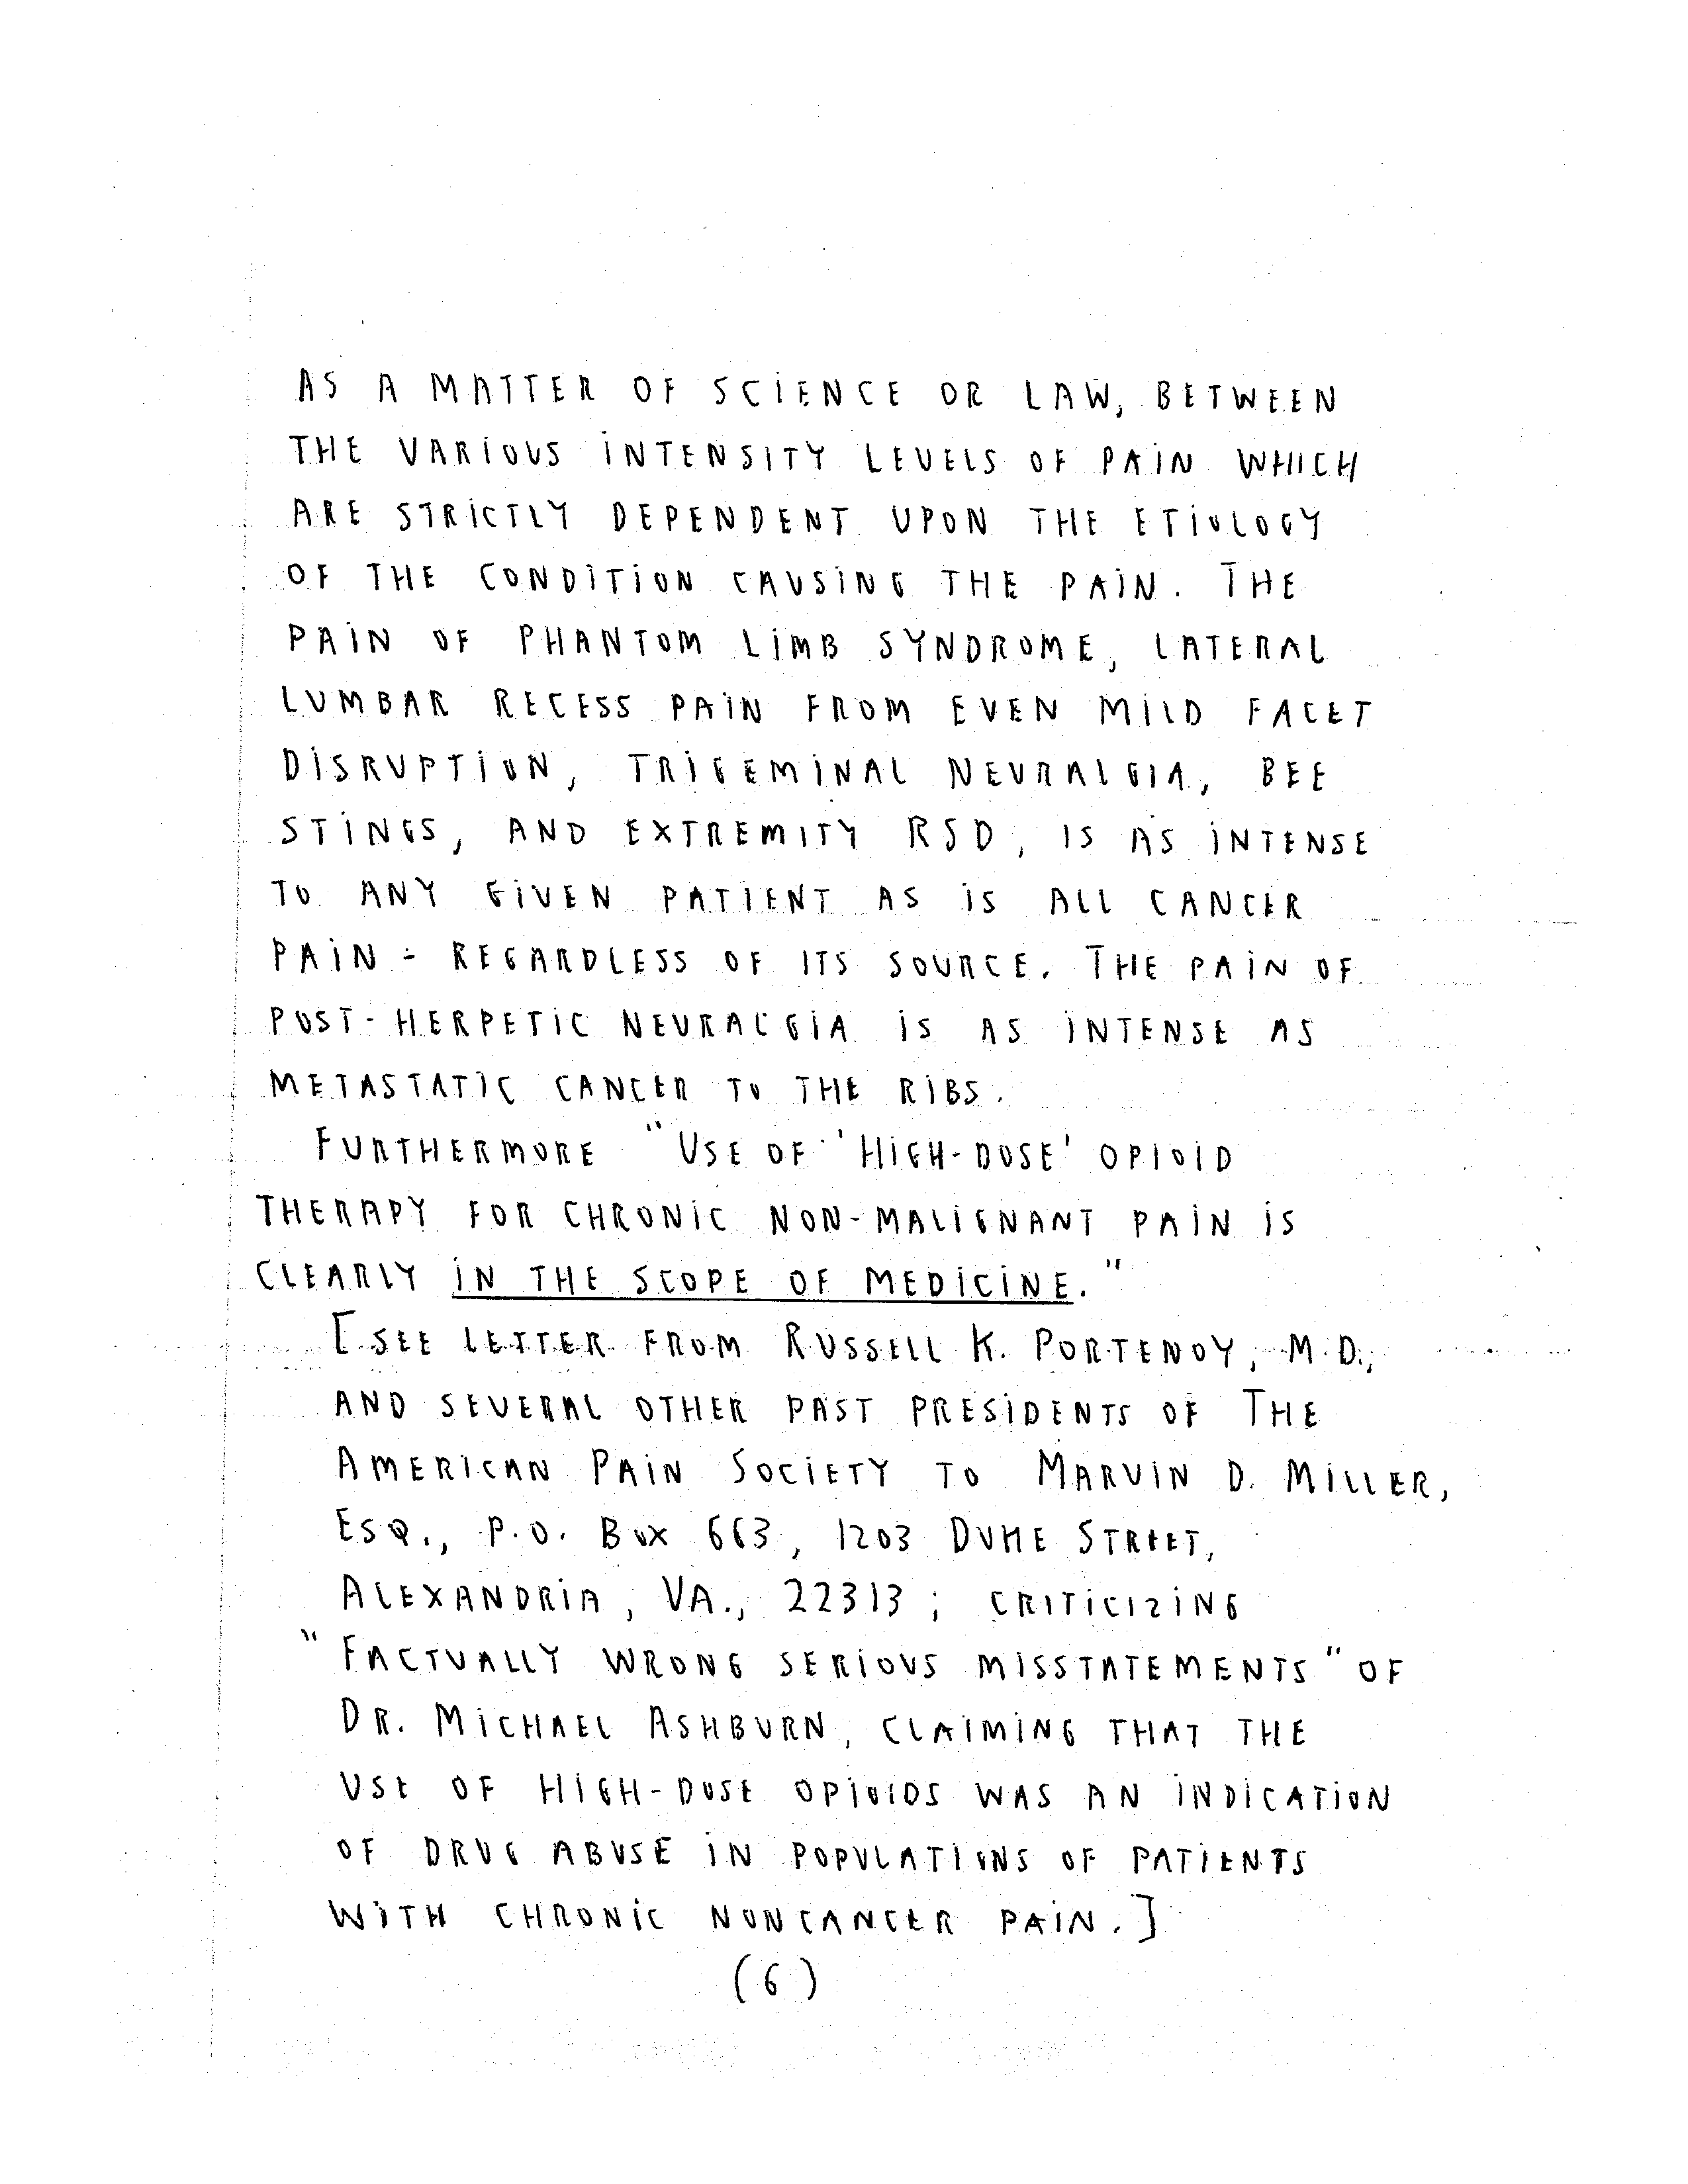 AS A MATTER OF SCIENCE OR LAW, BETWEEN
THE VARIOUS INTENSITY LEVELS OF PAIN WHICH
ARE STRICTLY DEPENDENT UPON THE ETIOLOGY
OF THE CONDITION CAUSING THE PAIN. THE
PAIN OF PHANTOM LIMB SYNDROME, LATERAL
LUMBAR RECESS PAIN FROM EVEN MILD FACET
DISRUPTION, TRIGEMINAL NEURALGIA, BEE
STINGS, AND EXTREMITY RSD, IS AS INTENSE
TO ANY GIVEN PATIENT AS IS ALL CANCER
PAIN - REGARDLESS OF ITS SOURCE. THE PAIN OF
POST-HERPETIC NEURALGIA IS AS INTENSE AS
METASTATIC CANCER TO THE RIBS.
FURTHERMORE "USE OF 'HIGH-DOSE' OPIOID
THERAPY FOR CHRONIC NON-MALIGNANT PAIN IS
CLEARLY IN THE SCOPE OF MEDICINE."
[SEE LETTER FROM RUSSELL K. PORTENOY, M.D.,
AND SEVERAL OTHER PAST PRESIDENTS OF THE
AMERICAN PAIN SOCIETY TO MARVIN D. MILLER,
ESQ., P.O. BOX 663, 1203 DUKE STREET,
ALEXANDRIA, VA., 22313; CRITICIZING
"FACTUALLY WRONG SERIOUS MISSTATEMENTS" OF
DR. MICHAEL ASHBURN, CLAIMING THAT THE
USE OF HIGH-DOSE OPIOIDS WAS AN INDICATION
OF DRUG ABUSE IN POPULATIONS OF PATIENTS
WITH CHRONIC NONCANCER PAIN.]
(6)